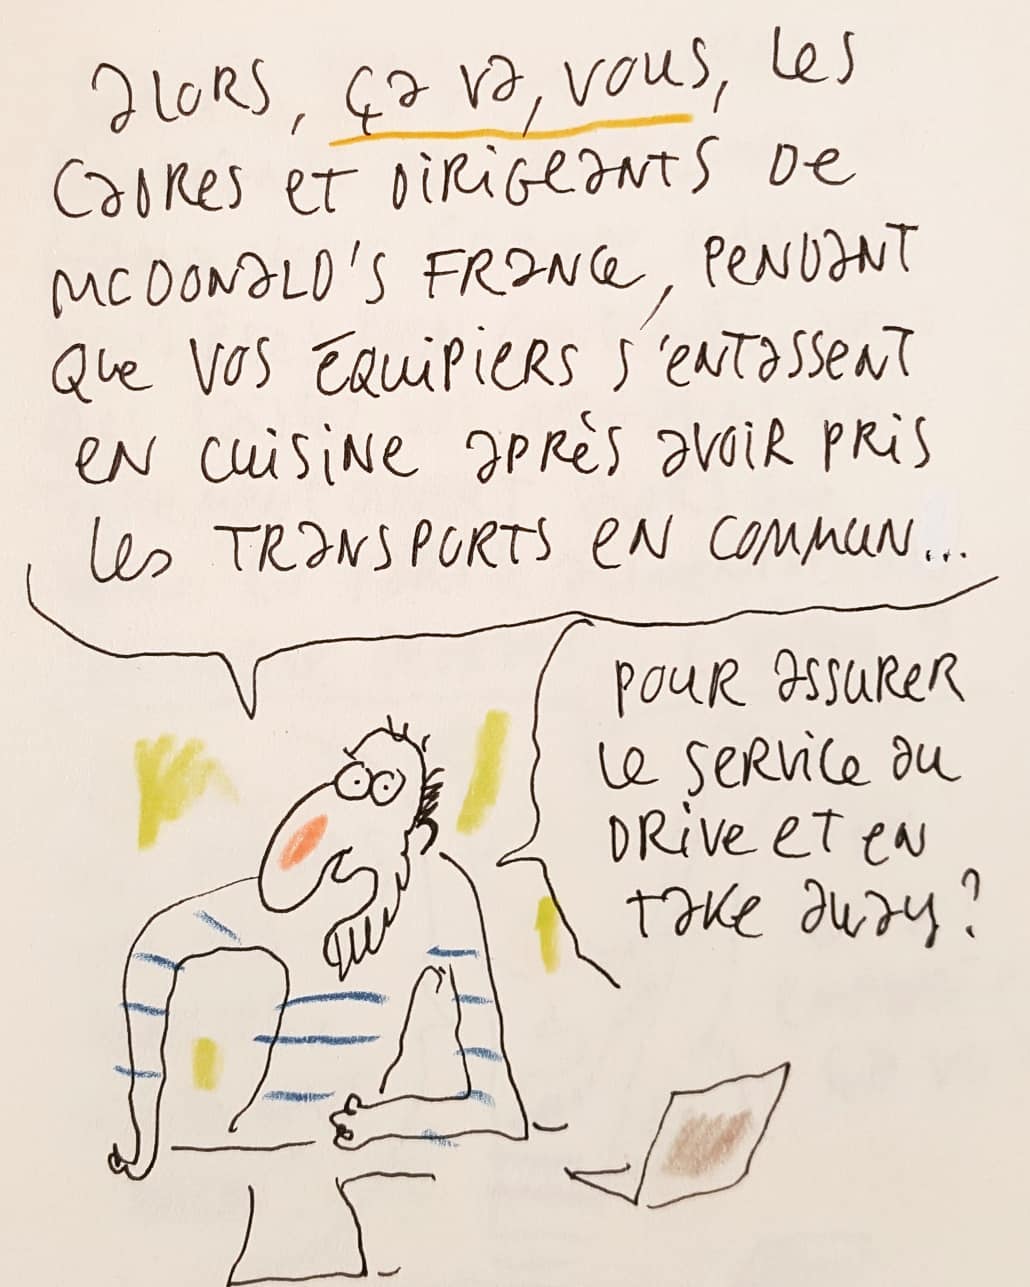 alors, ça va, vous, les
cadres et dirigeants de
McDonald's France, pendant
que vos équipiers s'entassent
en cuisine après avoir pris
les transports en commun...
pour assurer
le service au
drive et en
take away?